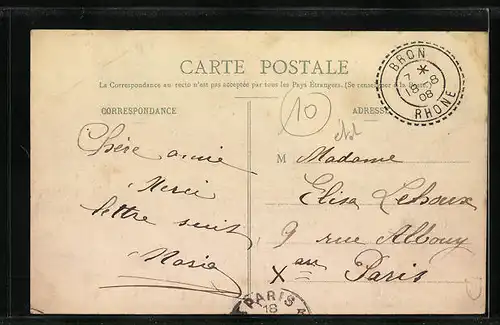 CARTE POSTALE
La Correspondance au recto n'est pas acceptée par tous les Pays Étrangers. (Se renseigner à la Poste)
CORRESPONDANCE
ADRESSE
BRON
7 *
18-8
08
RHONE
10
Chère amie
Merci
lettre suit
Maria
M Madame
Elisa
9 rue Albouy
X
Paris
PARIS
18